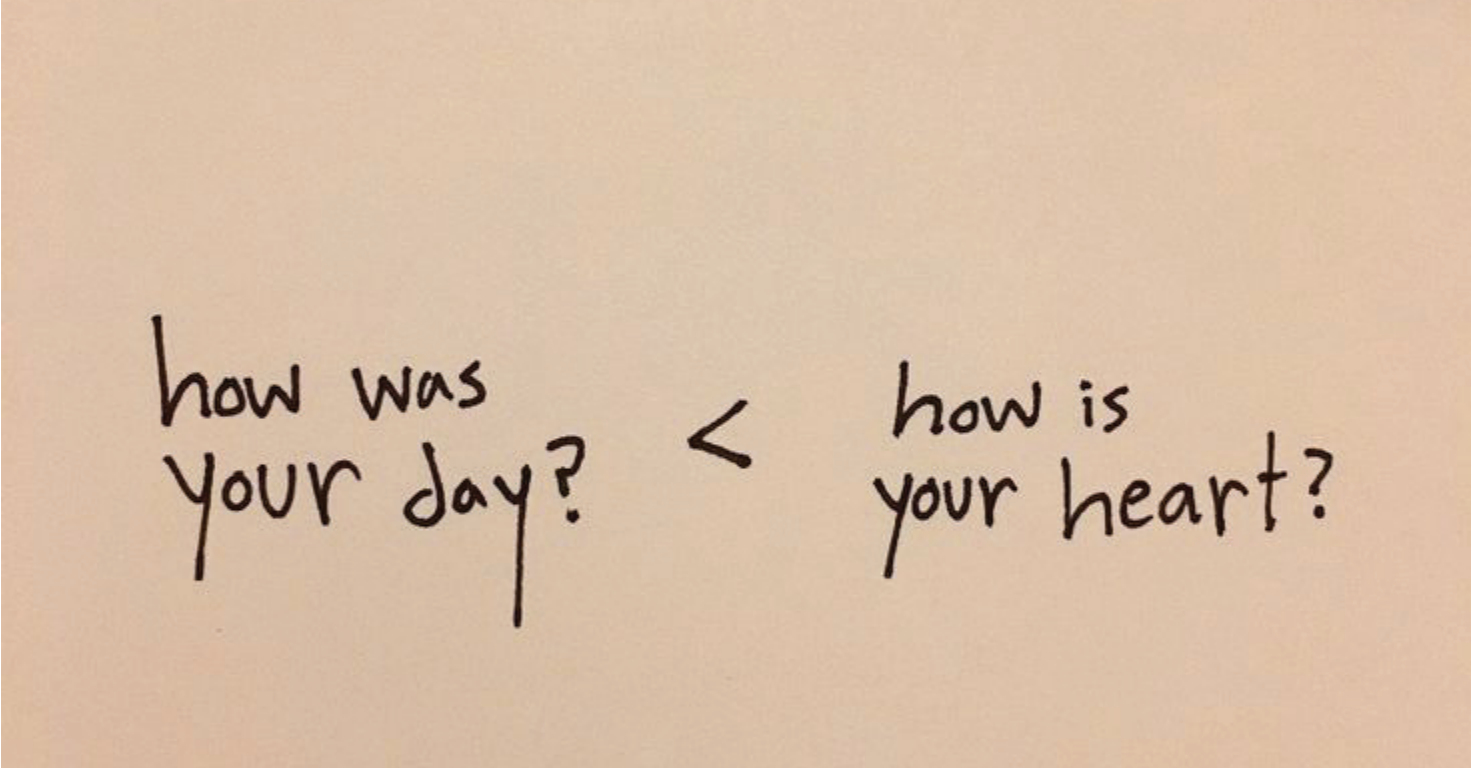 how was
your day?
<
how is
your heart?